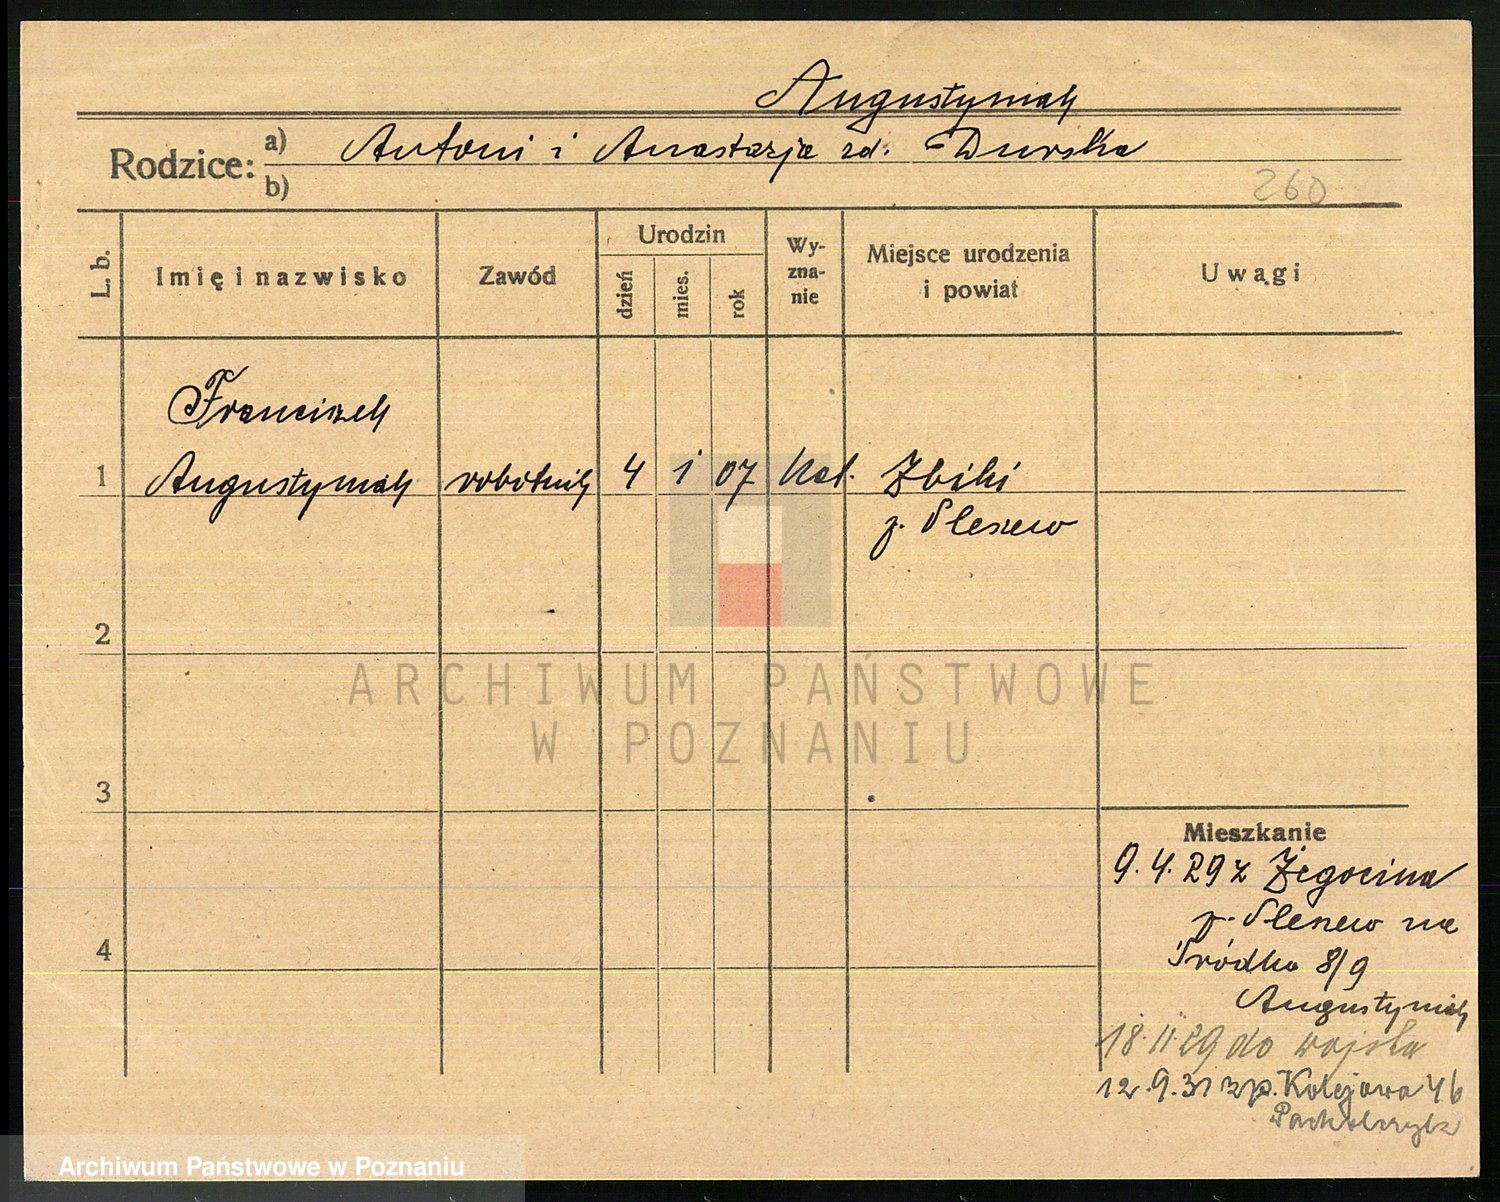 Augustyniak
Rodzice: a) Antoni i Anastazja zd. Durska
b)
260
L. b.
Imię i nazwisko
Zawód
Urodzin
dzień
mies.
rok
Wy-
zna-
nie
Miejsce urodzenia
i powiat
Uwagi
Franciszek
1 Augustyniak robotnik 4 1 07 kat. Żbiki
p. Pleszew
2
3
4
Mieszkanie
9.4.29 z Żegocina
p. Pleszew na
Śródka 8/9
Augustyniak
18.11.29 do wojska
12.9.31 zp. Kolejowa 46
ARCHIWUM PAŃSTWOWE
W POZNANIU
Archiwum Państwowe w Poznaniu